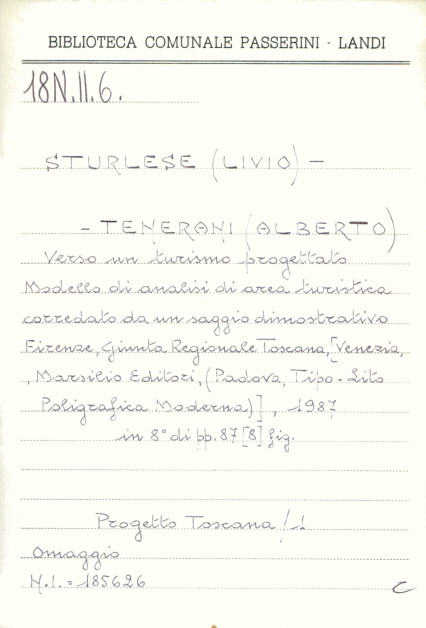 BIBLIOTECA COMUNALE PASSERINI - LANDI
18N.II.6.
STURLESE (LIVIO) -
- TENERANI (ALBERTO)
Verso un turismo progettato
Modello di analisi di area turistica
corredato da un saggio dimostrativo
Firenze, Giunta Regionale Toscana, [Venezia,
, Marsilio Editori, (Padova, Tipo-Lito
Poligrafica Moderna)], 1987
in 8° di pp. 87 [8] fig.
Progetto Toscana / 1
Omaggio
N.I. = 185626
C